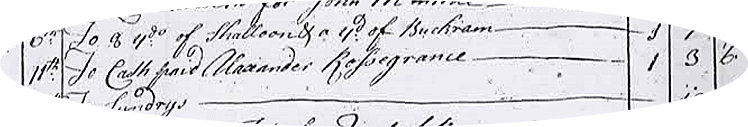 for John M
6th To 8 yds of Shalloon & a yd of Buckram 3
11th To Cash paid Alaxander Rossegrance 1 3 6
To Sundrys